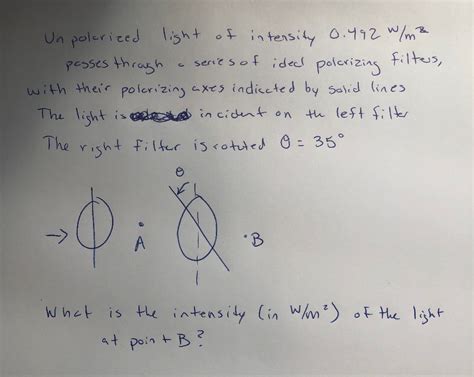 Unpolarized light of intensity 0.492 W/m²
passes through a series of ideal polarizing filters,
with their polarizing axes indicated by solid lines
The light is incident on the left filter
The right filter is rotated θ = 35°
θ
A
B
What is the intensity (in W/m²) of the light
at point B?